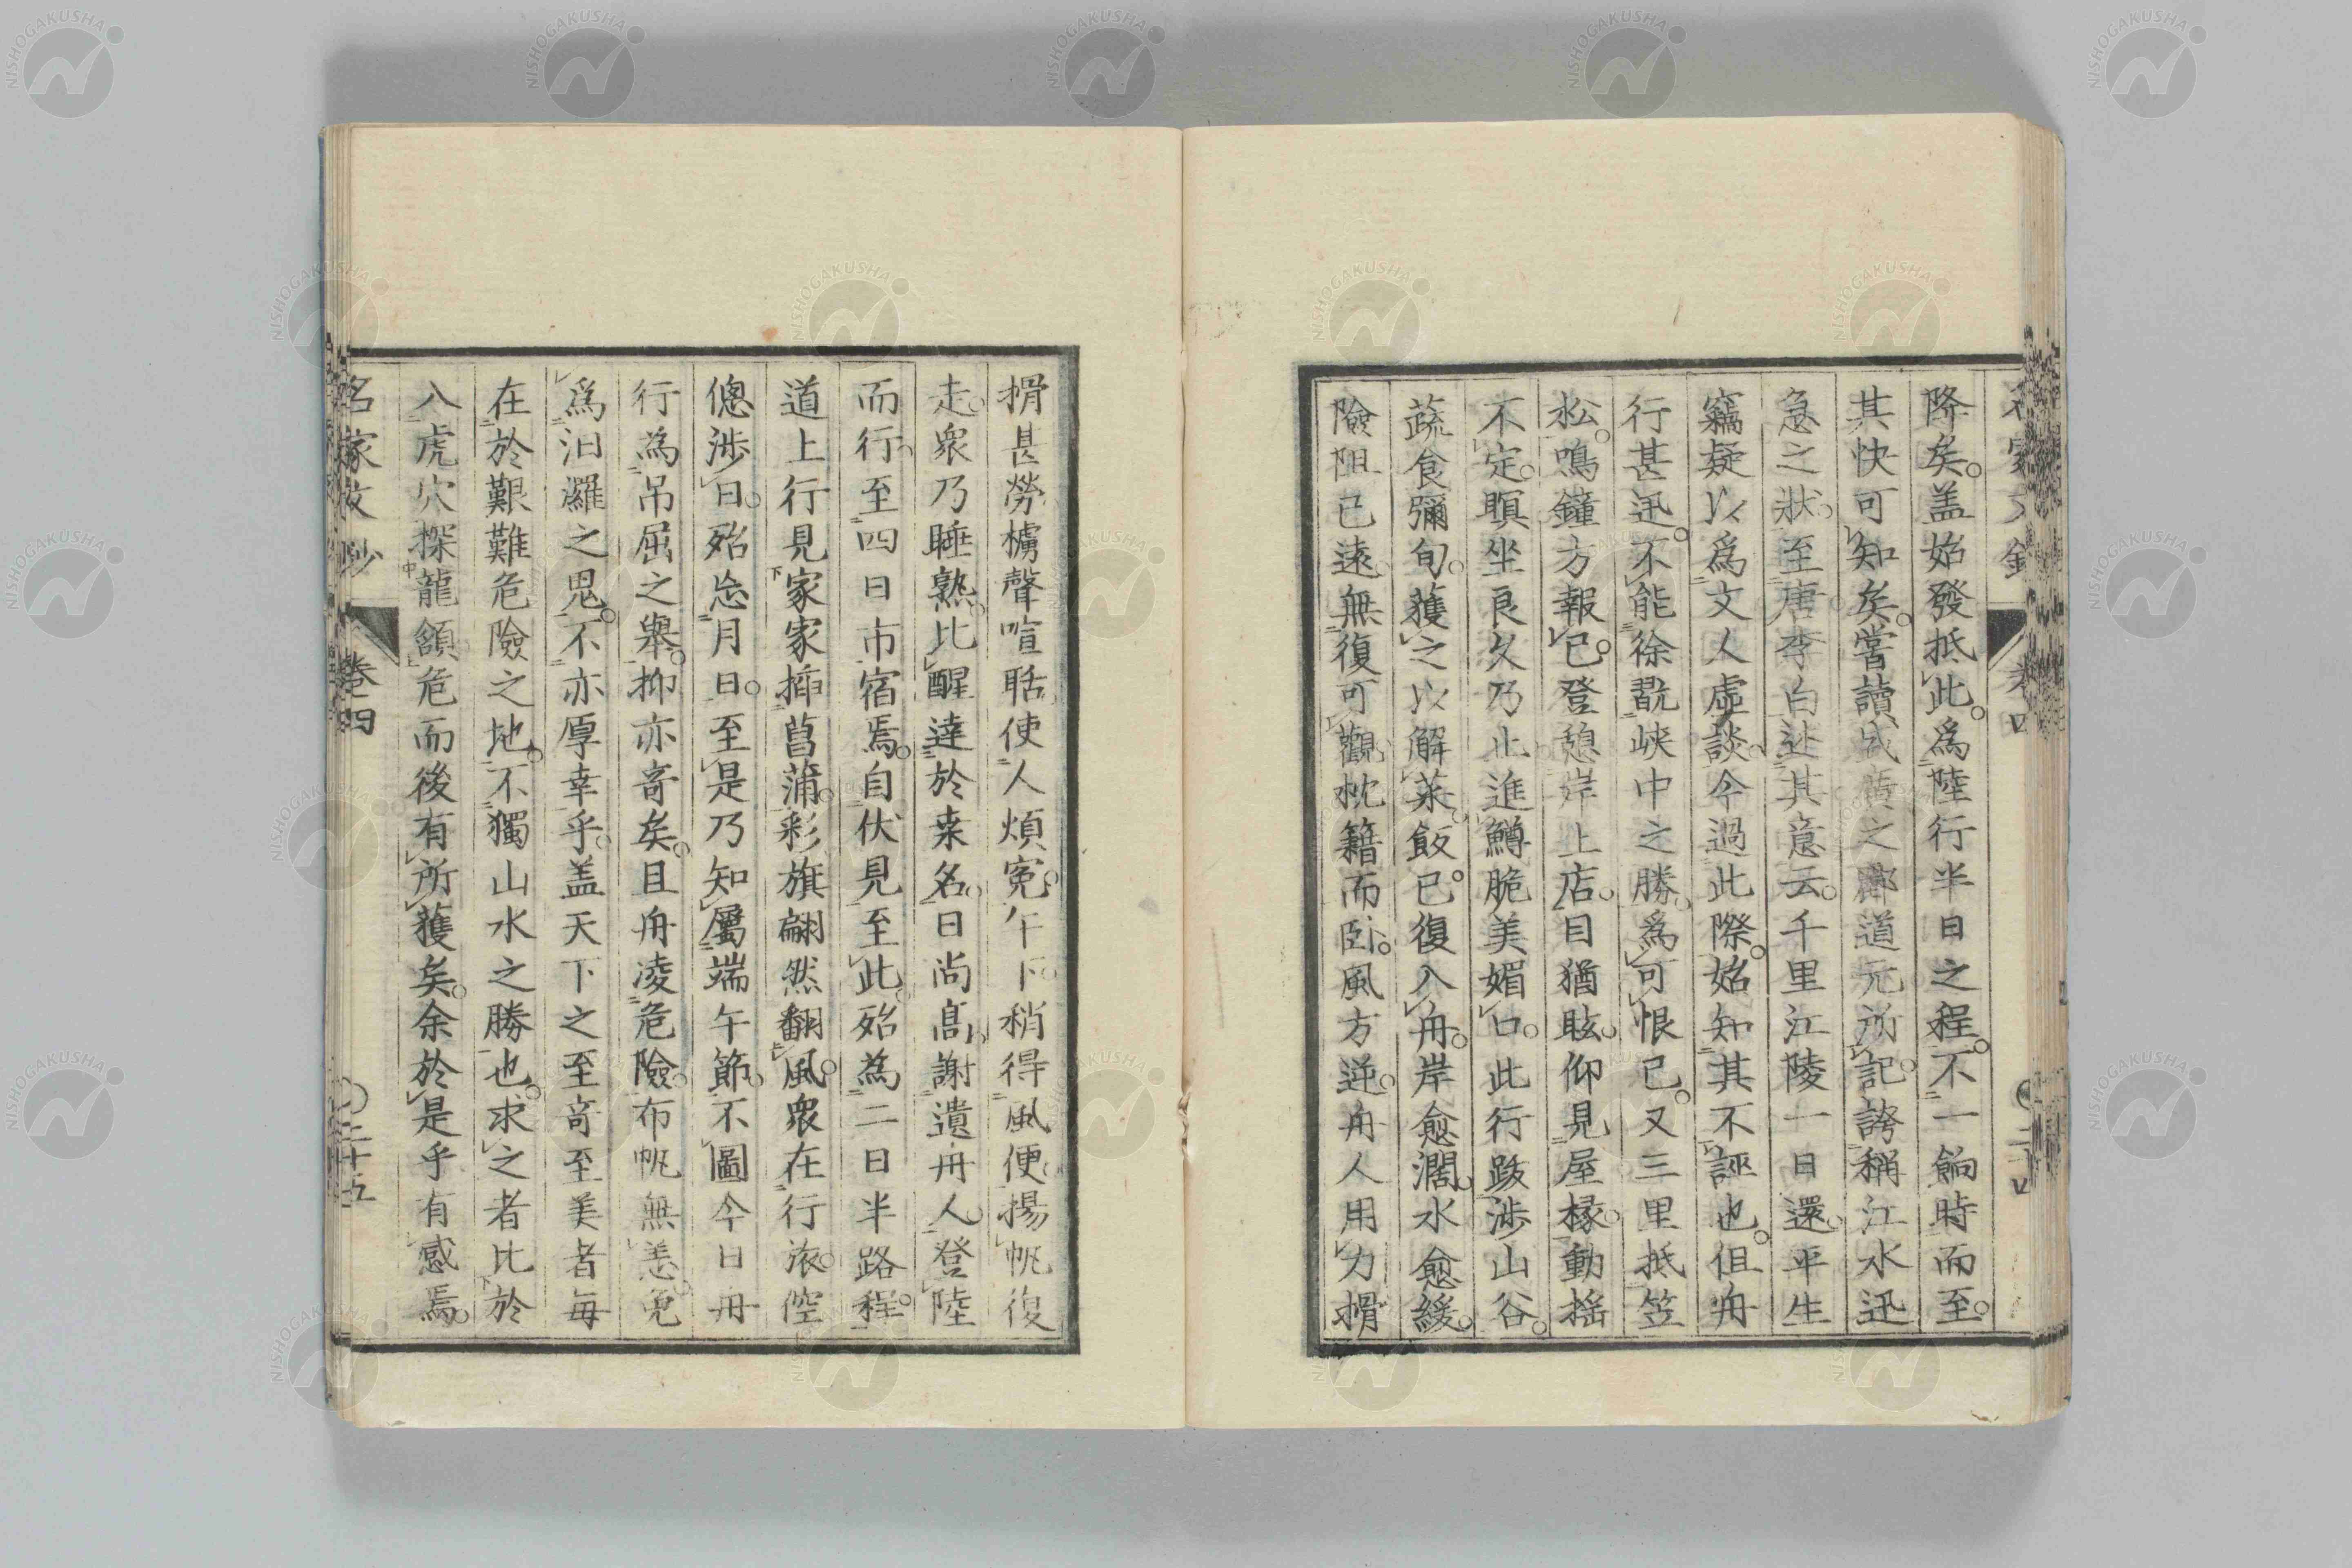 降矣。盖始發抵此。爲陸行半日之程。不一餉時而至。
其快可知矣。嘗讀盛廣之酈道元所記。誇稱江水迅
急之狀。至唐李白述其意云。千里江陵一日還。平生
竊疑以爲文人虛談。今過此際。始知其不誣也。但舟
行甚迅。不能徐翫峽中之勝。爲可恨已。又三里抵笠
松。鳴鐘方報巳。登憩岸上店。目猶眩。仰見屋椽動搖
不定。瞑坐良久乃止。進鱒脆美媚口。此行跋涉山谷。
蔬食彌旬。獲之以解菜飯已。復入舟。岸愈濶。水愈緩。
險阻已遠。無復可觀。枕籍而卧。風方逆。舟人用力搰
搰甚勞。櫓聲喧聒使人煩寃。午下稍得風便。揚帆復
走。衆乃睡熟。比醒達於桒名。日尚高。謝遣舟人。登陸
而行。至四日市宿焉。自伏見至此。殆為二日半路程。
道上行見家家插菖蒲。彩旗翩然翻風。衆在行旅。倥
傯涉日。殆忘月日。至是乃知屬端午節。不圖今日舟
行為吊屈之舉。抑亦奇矣。且舟凌危險。布帆無恙。免
爲汨羅之鬼。不亦厚幸乎。盖天下之至奇至美者每
在於艱難危險之地。不獨山水之勝也。求之者比於
入虎穴探龍頷危而後有所獲矣。余於是乎有感焉。
名家文抄
卷四
二十五